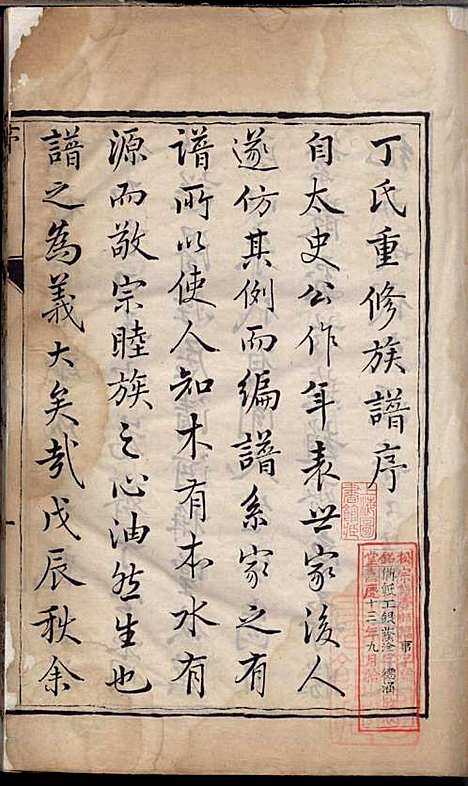 丁氏重修族譜序
自太史公作年表世家後人
遂仿其例而編譜系家之有
譜所以使人知木有本水有
源而敬宗睦族之心油然生也
譜之為義大矣哉戊辰秋余
上海圖
書館藏
慶十三年九月